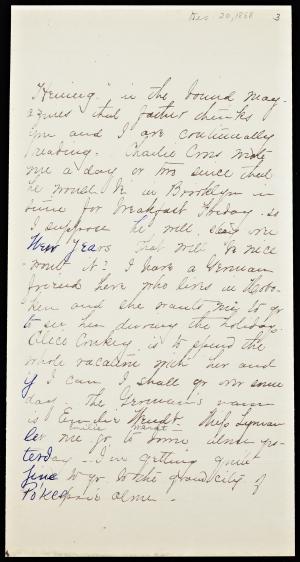 Dec. 20, 1868
3
Hening" in the bound mag-
azines that father thinks
you and I are continually
reading. Charlie Cross wrote
me a day or two since that
he would be in Brooklyn in
time for breakfast Friday. so
I suppose he will stay over
New Years. That will be nice
won't it? I have a German
friend here who lives in Hobo-
ken and she wants me to go
to see her during the holidays.
is to spend the
whole vacation with her and
if I can I shall go over some
day. The German's name
is Emilie Wendt. Miss Lyman
Emilie Wendt
let me go to town alone yes-
terday - I'm getting quite
fine to go to the grand city of
Pokeepsie alone -